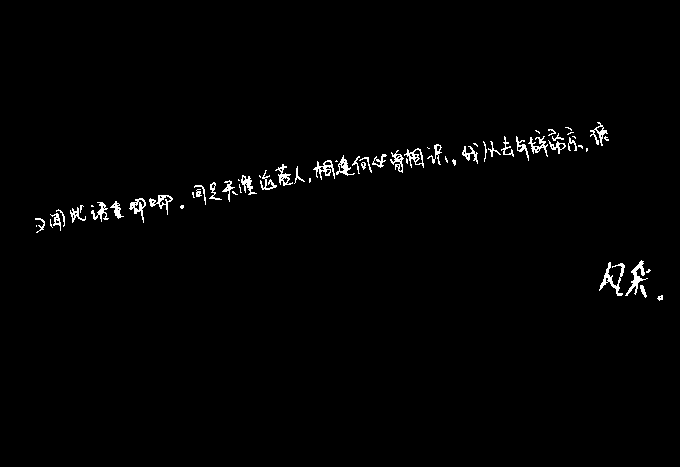 又闻此语重唧唧。同是天涯沦落人,相逢何必曾相识。我从去年辞帝京,谪
风采。